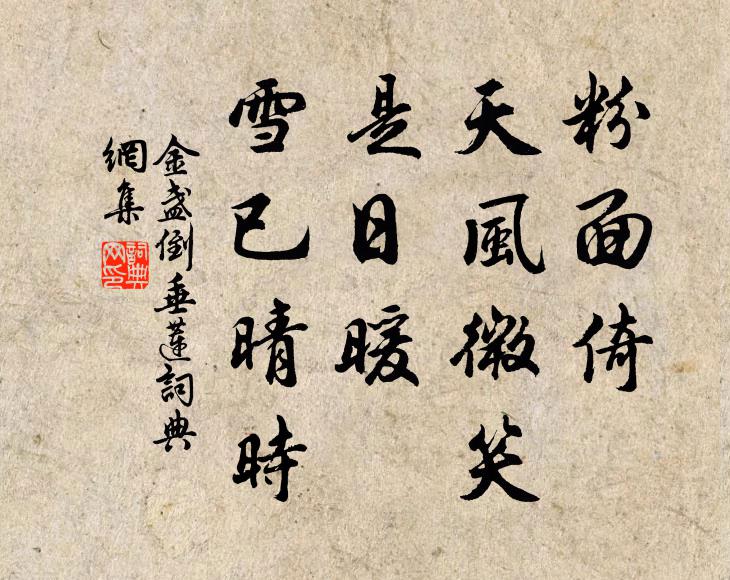 粉面倚
天風微笑
是日暖
雪已晴時
金盞倒垂蓮詞典
網集
詞典
网印